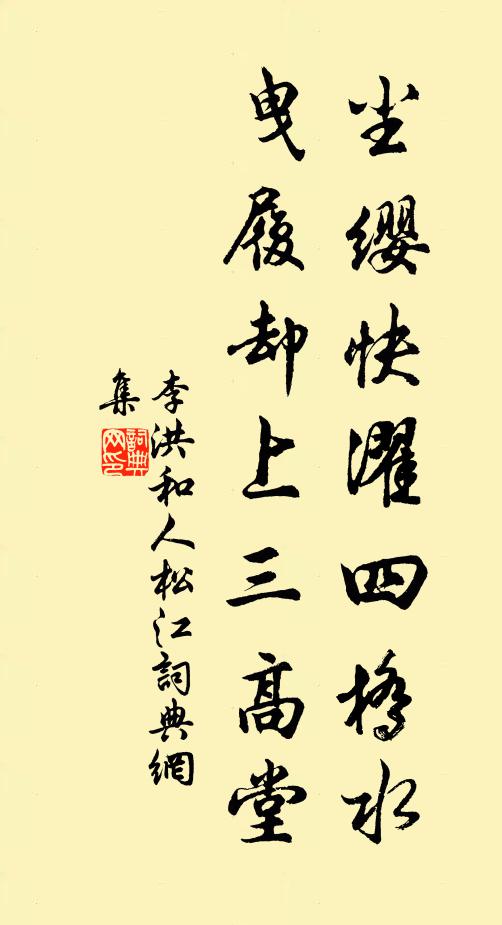 尘缨快濯四桥水
曳履却上三高堂
李洪和人松江詞典網
集
詞典网印